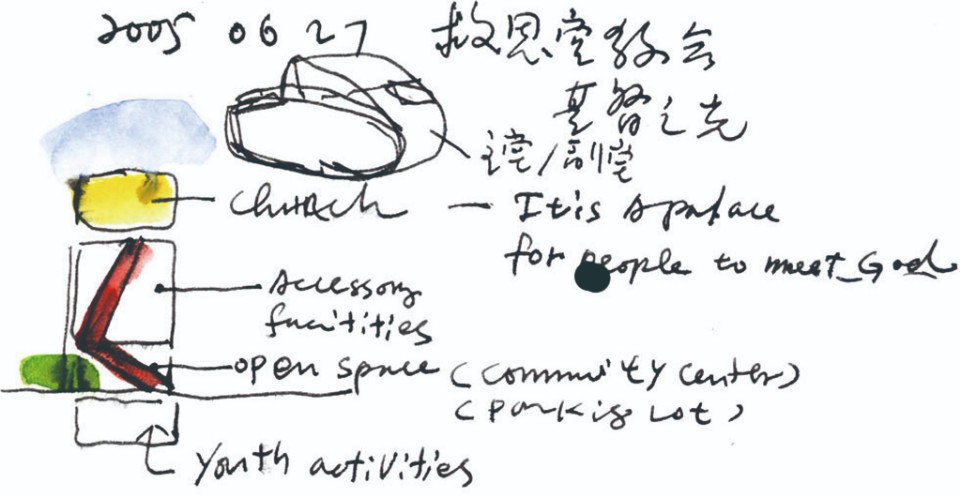 2005 06 27 救恩堂教会
基督之光
主堂/副堂
church — It is A palace
for people to meet God
Accessory
facilities
open space (community center)
(parking Lot)
Youth activities